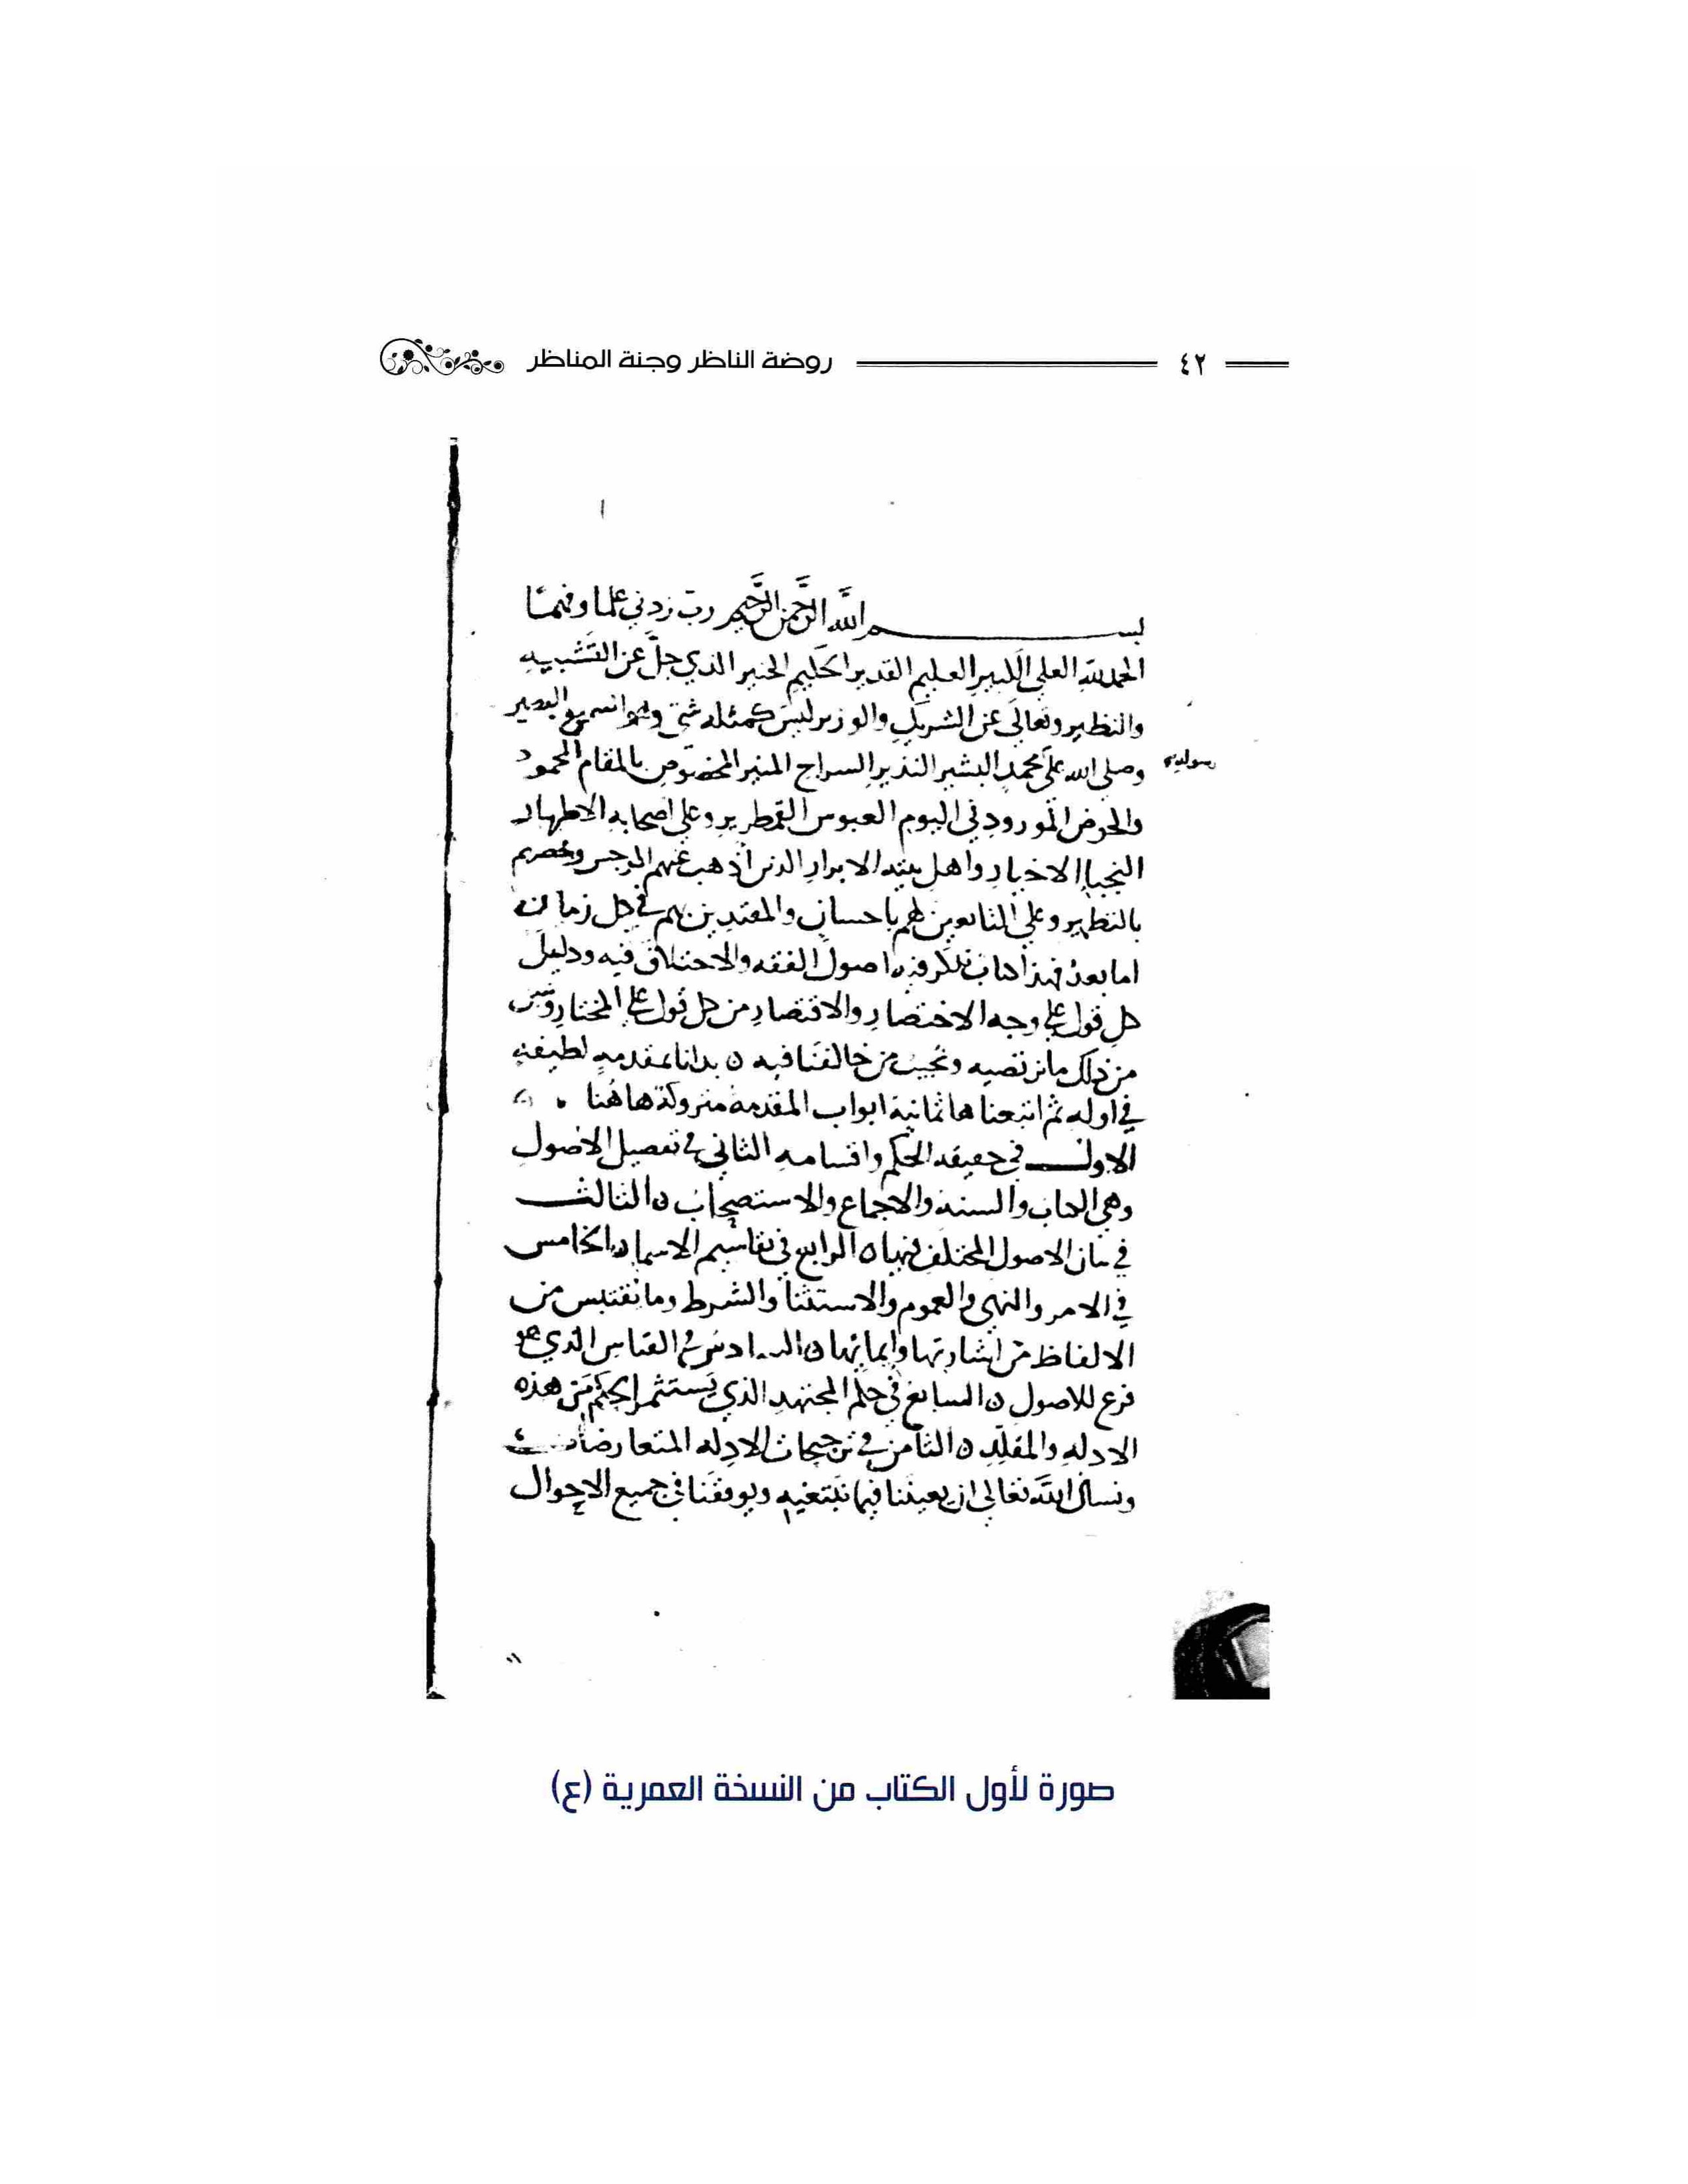 ٤٢ روضة الناظر وجنة المناظر
بسم اللَّه الرَّحمن الرَّحيم رب زدني علما وفهما
الحمد لله العلي الكبير العليم القدير الحكيم الخبير الذي جلَّ عن التَشبيه
والنظير وتعالى عن الشريك والوزير ليسَ كمثله شي وهو السميع البصير
وصلى الله على محمد البشير النذير السراج المنير المخصوص بالمقام المحمود
رسوله
والحوض المورود في اليوم العبوس القمطرير وعلى اصحابه الاطهار
النجبا الاخيار واهل بيته الابرار الذين أذهب عنهم الرجس وخصهم
بالتطهير وعلى التابعين لهم باحسان والمقتدين بهم في كل زمان
اما بعد فهذا كتاب نذكر فيه اصول الفقه والاختلاف فيه ودليل
كل قول على وجه الاختصار والاقتصار من كل قول على المختار ونبين
من ذلك ما نرتضيه ونجيب من خالفنا فيه ن بدانا بمقدمه لطيفه
في اوله ثم اتبعنا ها ثمانية ابواب المقدمة متروكة هاهُنا
الاول في حقيقه الحكم واقسامه الثاني في تفصيل الاصول
وهي الكتاب والسنة والاجماع والاستصحاب ن الثالث
في بيان الاصول المختلف فيها ن الرابع في تقاسيم الاسما ن الخامس
في الامر والنهي والعموم والاستثنا والشرط وما نقتبس من
الالفاظ من اشارتها وإيمائها ن السادس في القياس الذي هو
فرع للاصول ن السابع في حكم المجتهد الذي يَستثمر الحكم من هذه
الادله والمقلد ن الثامن في ترجيحات الادله المتعارضات
ونسأل اللَّه تعالى ان يعيننا فيما نبتغيه ويوفقنا في جميع الاحوال
صورة لأول الكتاب من النسخة العمرية (ع)